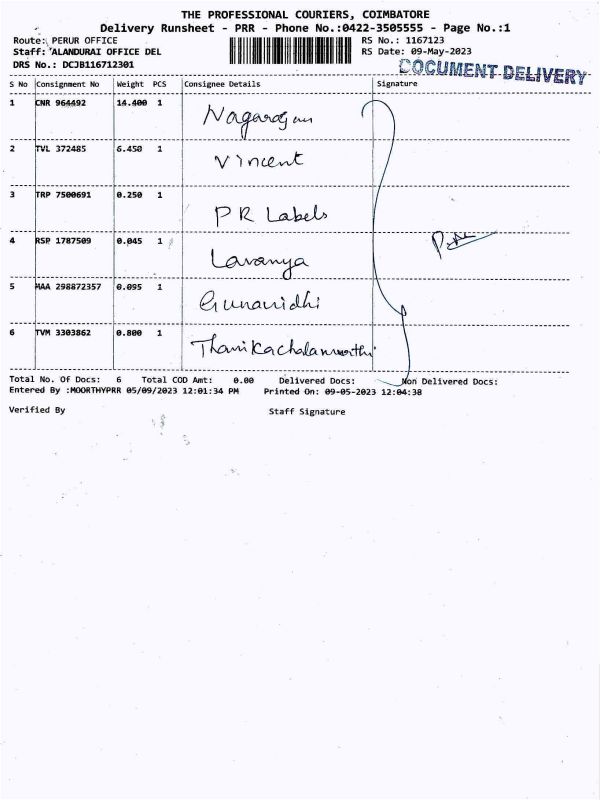 THE PROFESSIONAL COURIERS, COIMBATORE
Delivery Runsheet - PRR - Phone No.:0422-3505555 - Page No.:1
Route: PERUR OFFICE
RS No.: 1167123
Staff: ALANDURAI OFFICE DEL
RS Date: 09-May-2023
DRS No.: DCJB116712301
DOCUMENT DELIVERY
S No Consignment No Weight PCS Consignee Details Signature
1 CNR 964492 14.400 1 Nagarajan
2 TVL 372485 6.450 1 Vincent
3 TRP 7500691 0.250 1 PR Labels
4 RSP 1787509 0.045 1 Lavanya
5 MAA 298872357 0.095 1 Gunanidhi
6 TVM 3303862 0.800 1 Thanikachalamoorthi
Total No. Of Docs: 6 Total COD Amt: 0.00 Delivered Docs: Non Delivered Docs:
Entered By :MOORTHYPRR 05/09/2023 12:01:34 PM Printed On: 09-05-2023 12:04:38
Verified By Staff Signature